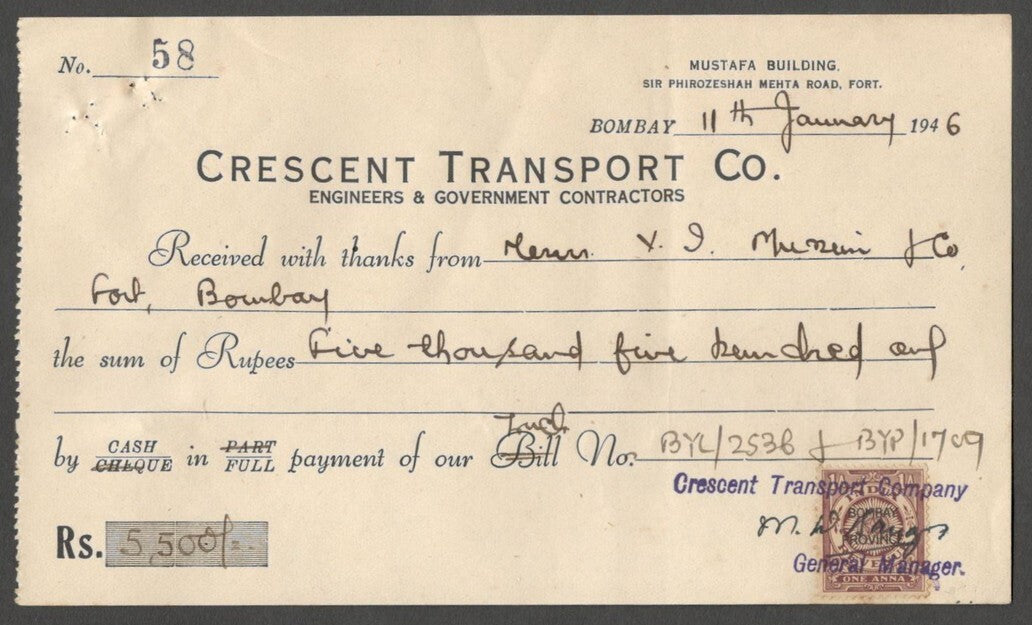 No. 58
MUSTAFA BUILDING,
SIR PHIROZESHAH MEHTA ROAD, FORT.
BOMBAY 11th January 1946
CRESCENT TRANSPORT CO.
ENGINEERS & GOVERNMENT CONTRACTORS
Received with thanks from Messrs. & Co
Fort, Bombay
the sum of Rupees Five thousand five hundred only
Truck
by CASH CHEQUE in PART FULL payment of our Bill No. BYL/2536 & BYP/1709
Crescent Transport Company
INDIA
BOMBAY
PROVINCE
M. D.
REVENUE
General Manager.
ONE ANNA
Rs. 5,500/-